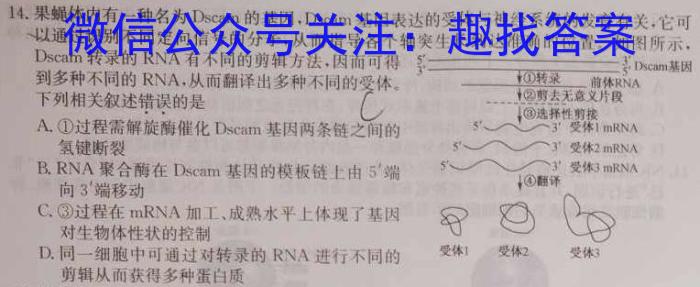 14. 果蝇体内有一种名为Dscam的基因,
微信公众号关注：趣找答案
Dscam转录的RNA有不同的剪辑方法,因而可得
到多种不同的RNA,从而翻译出多种不同的受体。
下列相关叙述错误的是
A. ①过程需解旋酶催化Dscam基因两条链之间的
氢键断裂
B. RNA聚合酶在Dscam基因的模板链上由5′端
向3′端移动
C. ③过程在mRNA加工、成熟水平上体现了基因
对生物体性状的控制
D. 同一细胞中可通过对转录的RNA进行不同的
剪辑从而获得多种蛋白质
5′
3′
5′ Dscam基因
①转录
前体RNA
②剪去无意义片段
③选择性剪接
5′ 3′ 受体1 mRNA
5′ 3′ 受体2 mRNA
5′ 3′ 受体3 mRNA
④翻译
受体1 受体2 受体3